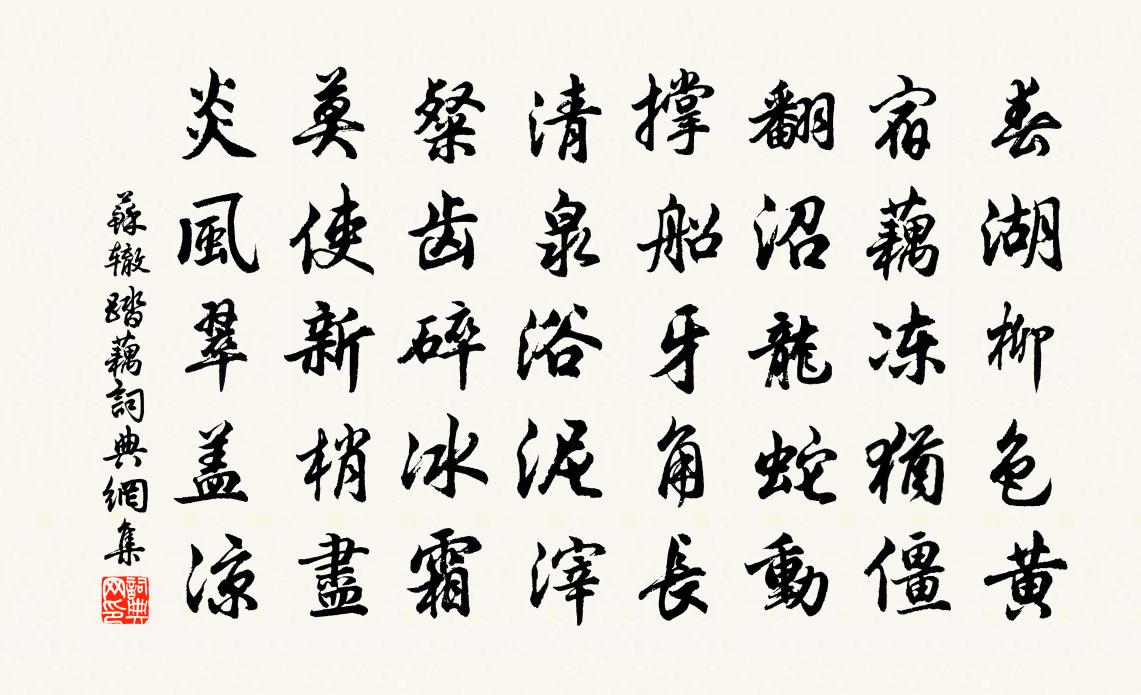 春湖柳色黄
宿藕冻猶僵
翻沼龍蛇動
撑船牙角長
清泉浴泥滓
粲齿碎冰霜
莫使新梢盡
炎風翠盖凉
蘇辙踏藕詞典網集
詞典網印